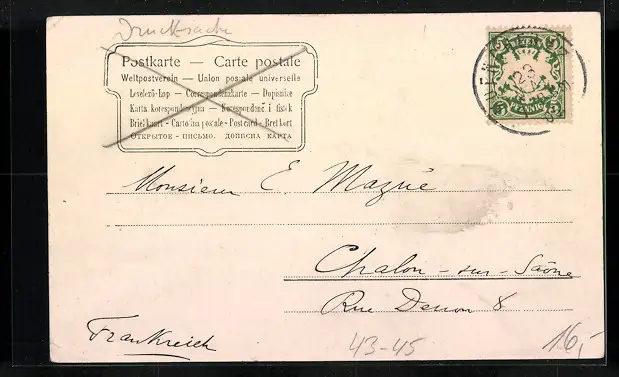 Drucksache
Postkarte — Carte postale
Weltpostverein — Union postale universelle
Levelező-Lap — Correspondenzkarte — Dopisnice
Karta korespondencyjna — Korespondenč i listek
Briefkaart - Cartolina postale - Post card - Brefkort
ОТКРЫТОЕ - ПИСЬМО. ДОПИСНА КАРТА
5 BAYERN 5
5 PFENNIG 5
23
Monsieur E. Mazué
Chalon-sur-Saône
Rue Denon 8
Frankreich
43-45
16,-